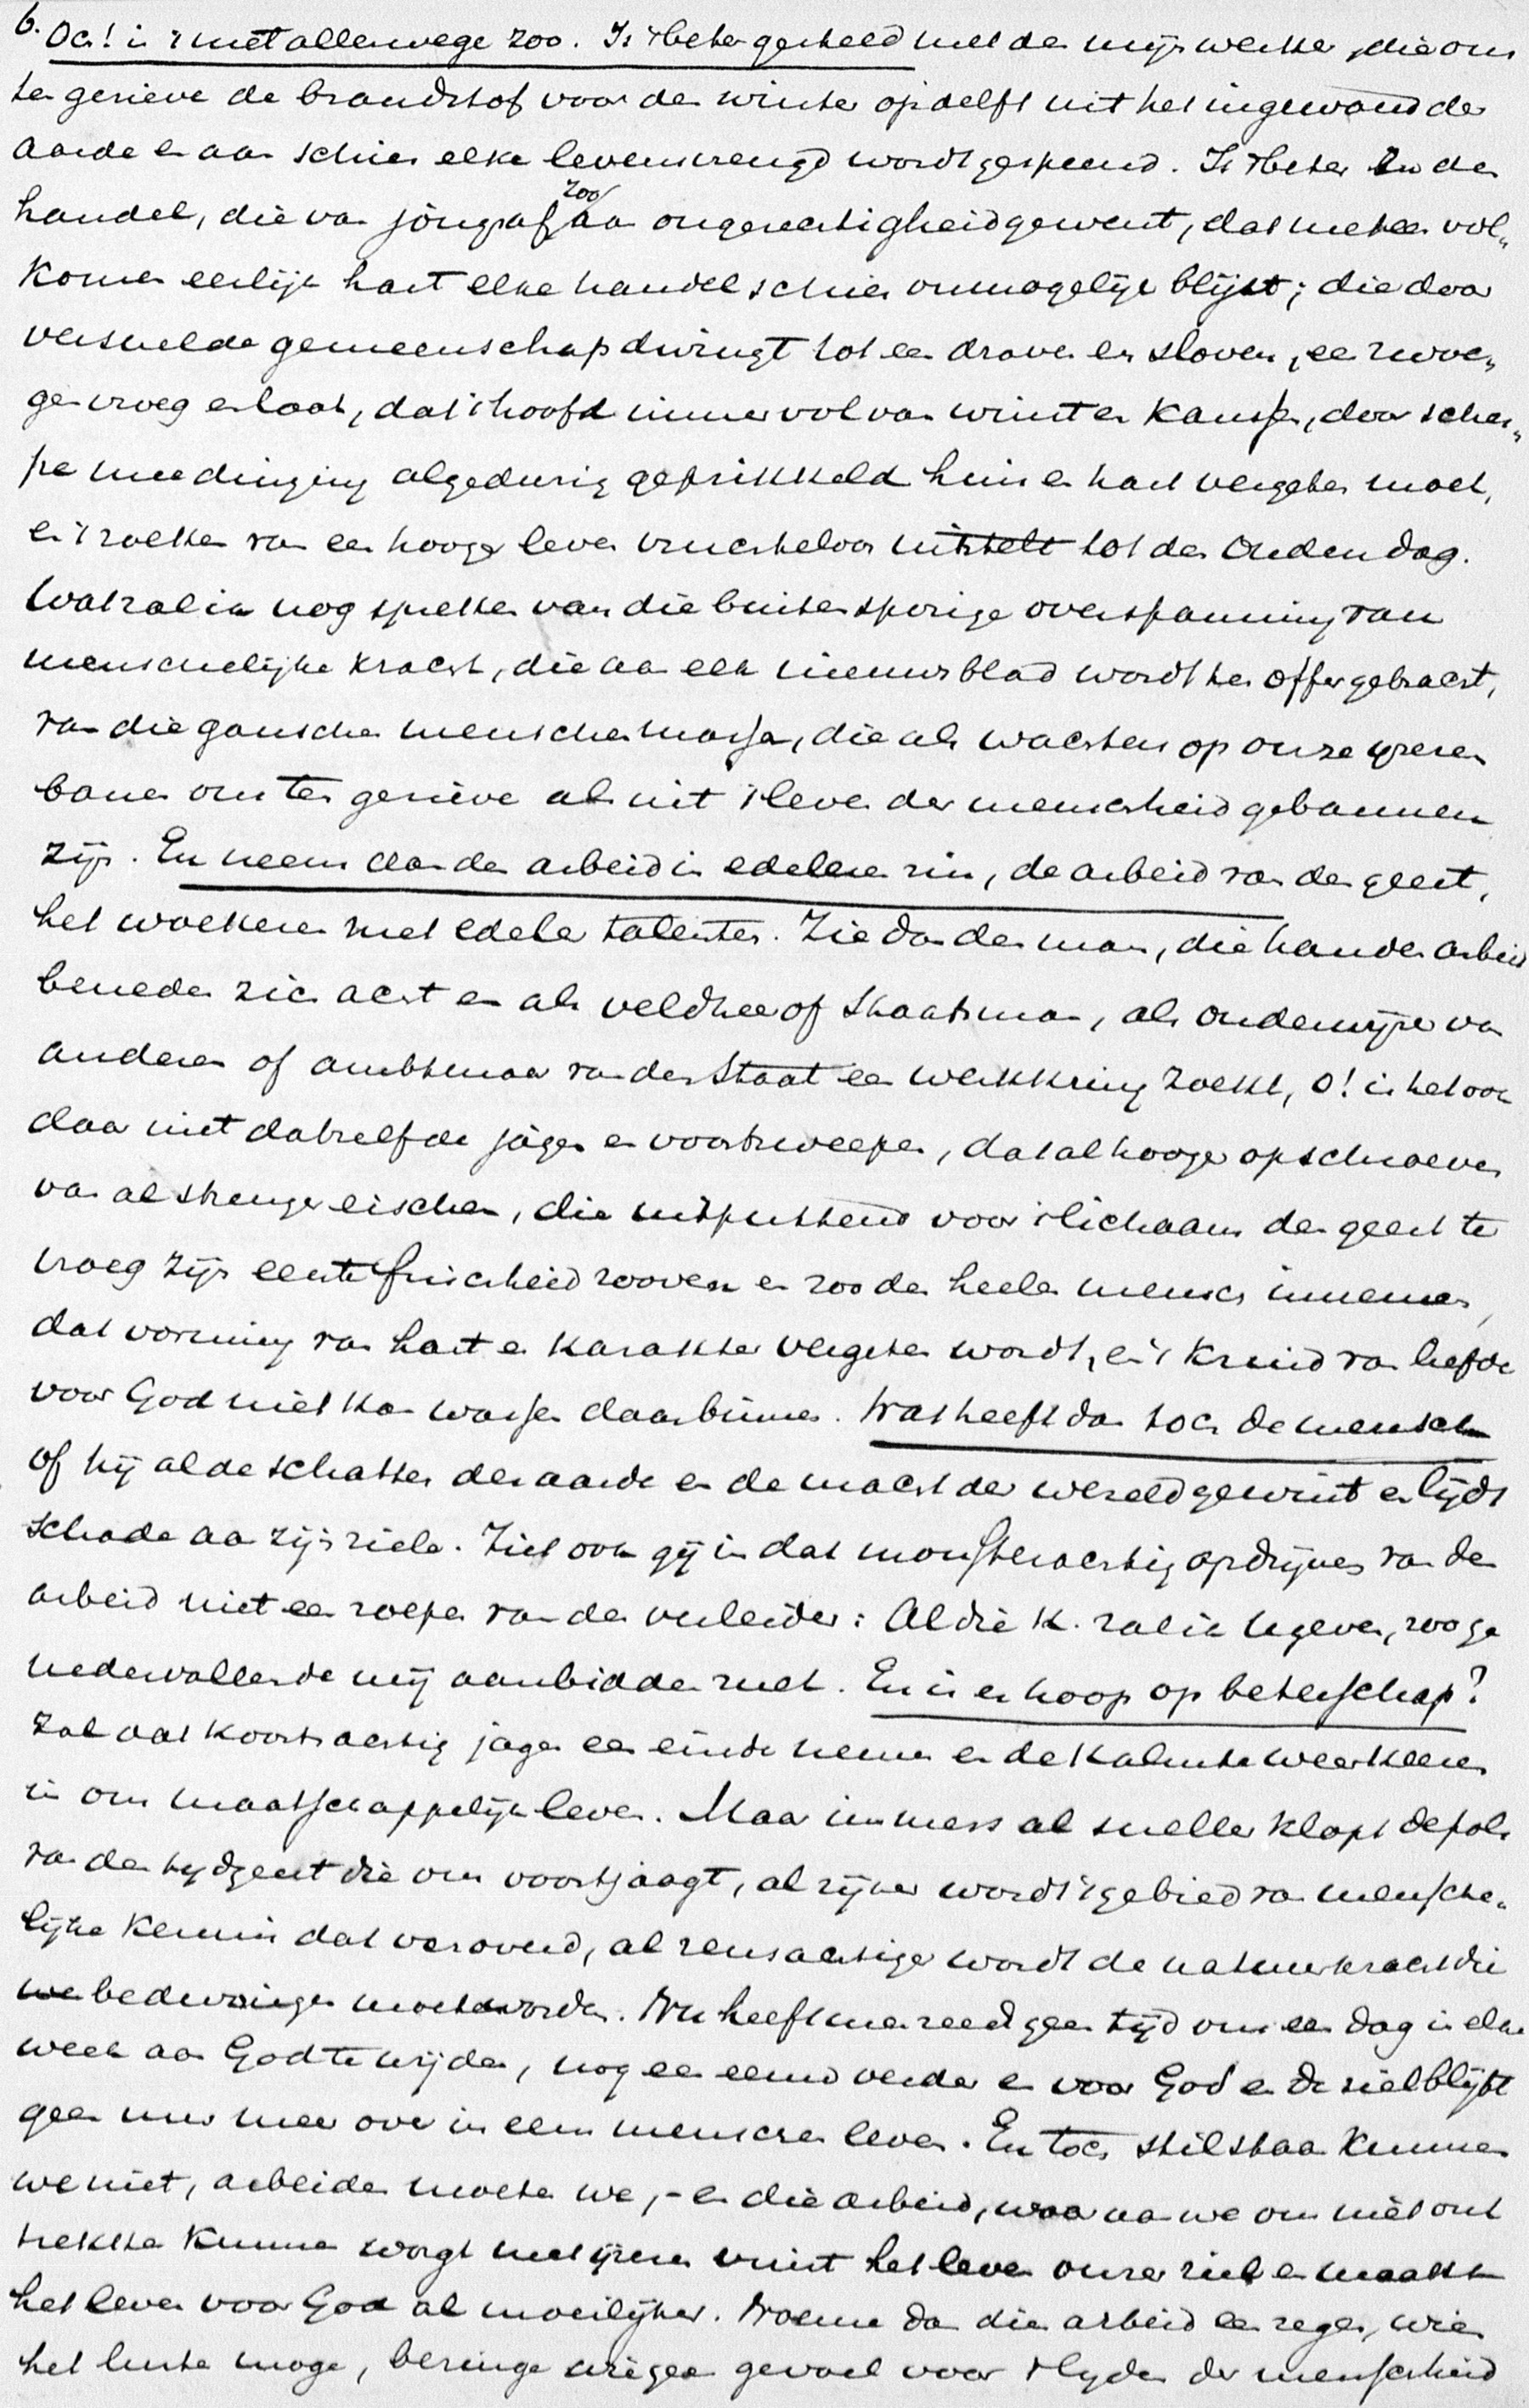 6. Och! is 't niet allerwege zoo. Is 't beter gesteld met den mijnwerker, die ons
ten gerieve de brandstof voor den winter opdelft uit het ingewand der
aarde en aan schier elke levensvreugd wordt gespeend. Is 't beter in den
handel, die van jongsaf zoo aan ongerechtigheid gewent, dat met een vol„
komen eerlijk hart elke handel schier onmogelijk blijkt; die door
versnelde gemeenschap dwingt tot een draven en sloven, een zwoe„
gen vroeg en laat, dat 't hoofd immer vol van winst en kansen, door scher„
pe mededinging algedurig geprikkeld huis en hart vergeten moet,
en 't zoeken van een hooger leven vruchteloos uitstelt tot den ouden dag.
Wat zal ik nog spreken van die buitensporige overspanning van
menschelijke kracht, die aan elk nieuwsblad wordt ten offer gebracht,
van die gansche menschenmassa, die als wachters op onze ijzeren
banen ons ten gerieve als uit 't leven der menschheid gebannen
zijn. En neem dan den arbeid in edelere zin, de arbeid van den geest,
het woekeren met edele talenten. Zie dan den man, die handenarbeid
beneden zich acht en als veldheer of staatsman, als onderwijzer van
anderen of ambtenaar van den Staat een werkkring zoekt, o! is het ook
daar niet datzelfde jagen en voortzweepen, dat al hooger opschroeven
van al strenger eischen, die uitputtend voor 't lichaam den geest te
vroeg zijn eerste frischheid rooven en zoo den heelen mensch innemen,
dat vorming van hart en karakter vergeten wordt, en 't kruid van liefde
voor God niet kan wassen daarbinnen. Wat heeft dan toch de mensch
of hij al de schatten der aarde en de macht der wereld gewint en lijdt
schade aan zijn ziele. Ziet ook gij in dat monsterachtig opdrijven van den
arbeid niet een roepen van den verleider: Al die K. zal ik u geven, zoo ge
nedervallende mij aanbidden zult. En is er hoop op beterschap?
Zal dat koortsachtig jagen een einde nemen en de kalmte weerkeeren
in ons maatschappelijk leven. Maar immers al sneller klopt de pols
van den tijdgeest die ons voortjaagt, al rijker wordt 't gebied van mensche„
lijke kennis dat veroverd, al reusachtiger wordt de natuurkracht die
bedwongen moet worden. Nu heeft men reeds geen tijd om een dag in elke
week aan God te wijden, nog een eeuw verder en voor God en de ziel blijft
geen uur meer over in een menschenleven. En toch stilstaan kunnen
we niet, arbeiden moeten we, - en die arbeid, waaraan we ons niet ont
trekken kunnen worgt met ijzeren vuist het leven onzer ziel en maakt
het leven voor God al moeilijker. Noeme dan dien arbeid een zegen, wien
het luste moge, bezinge wie geen gevoel voor 't lijden der menschheid